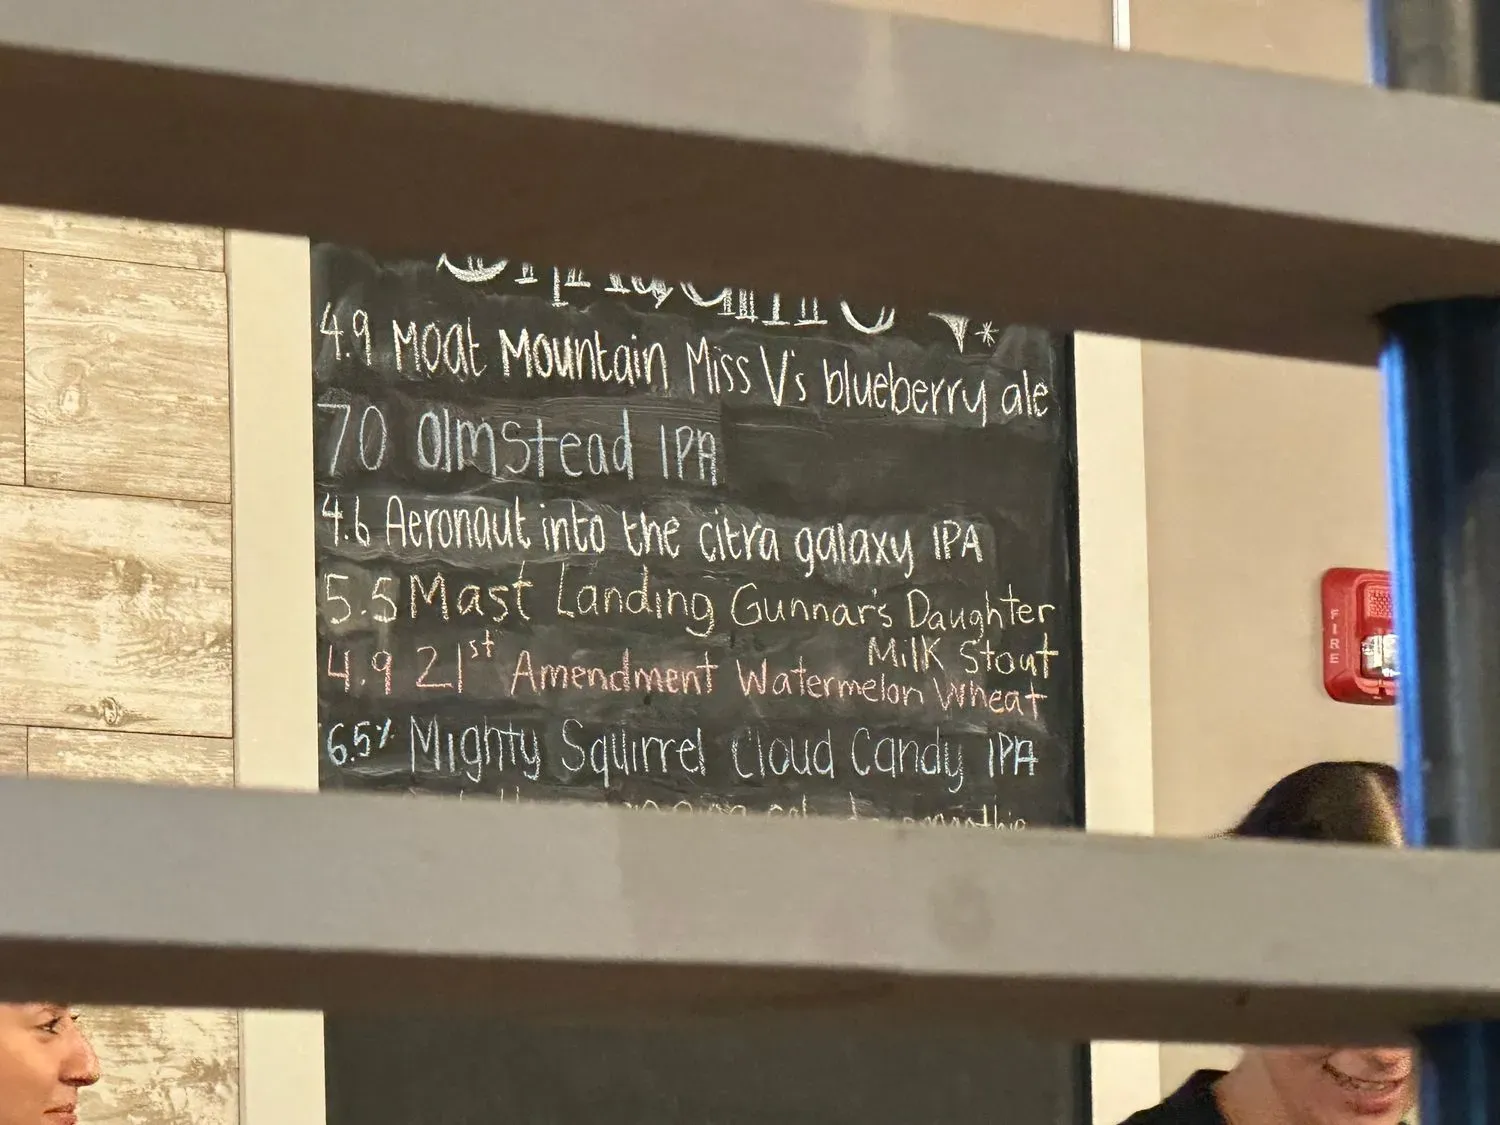 4.9 Moat Mountain Miss V's blueberry ale
70 Olmstead IPA
4.6 Aeronaut into the citra galaxy IPA
5.5 Mast Landing Gunnar's Daughter
Milk Stout
4.9 21st Amendment Watermelon Wheat
6.5% Mighty Squirrel Cloud Candy IPA
smoothie
FIRE